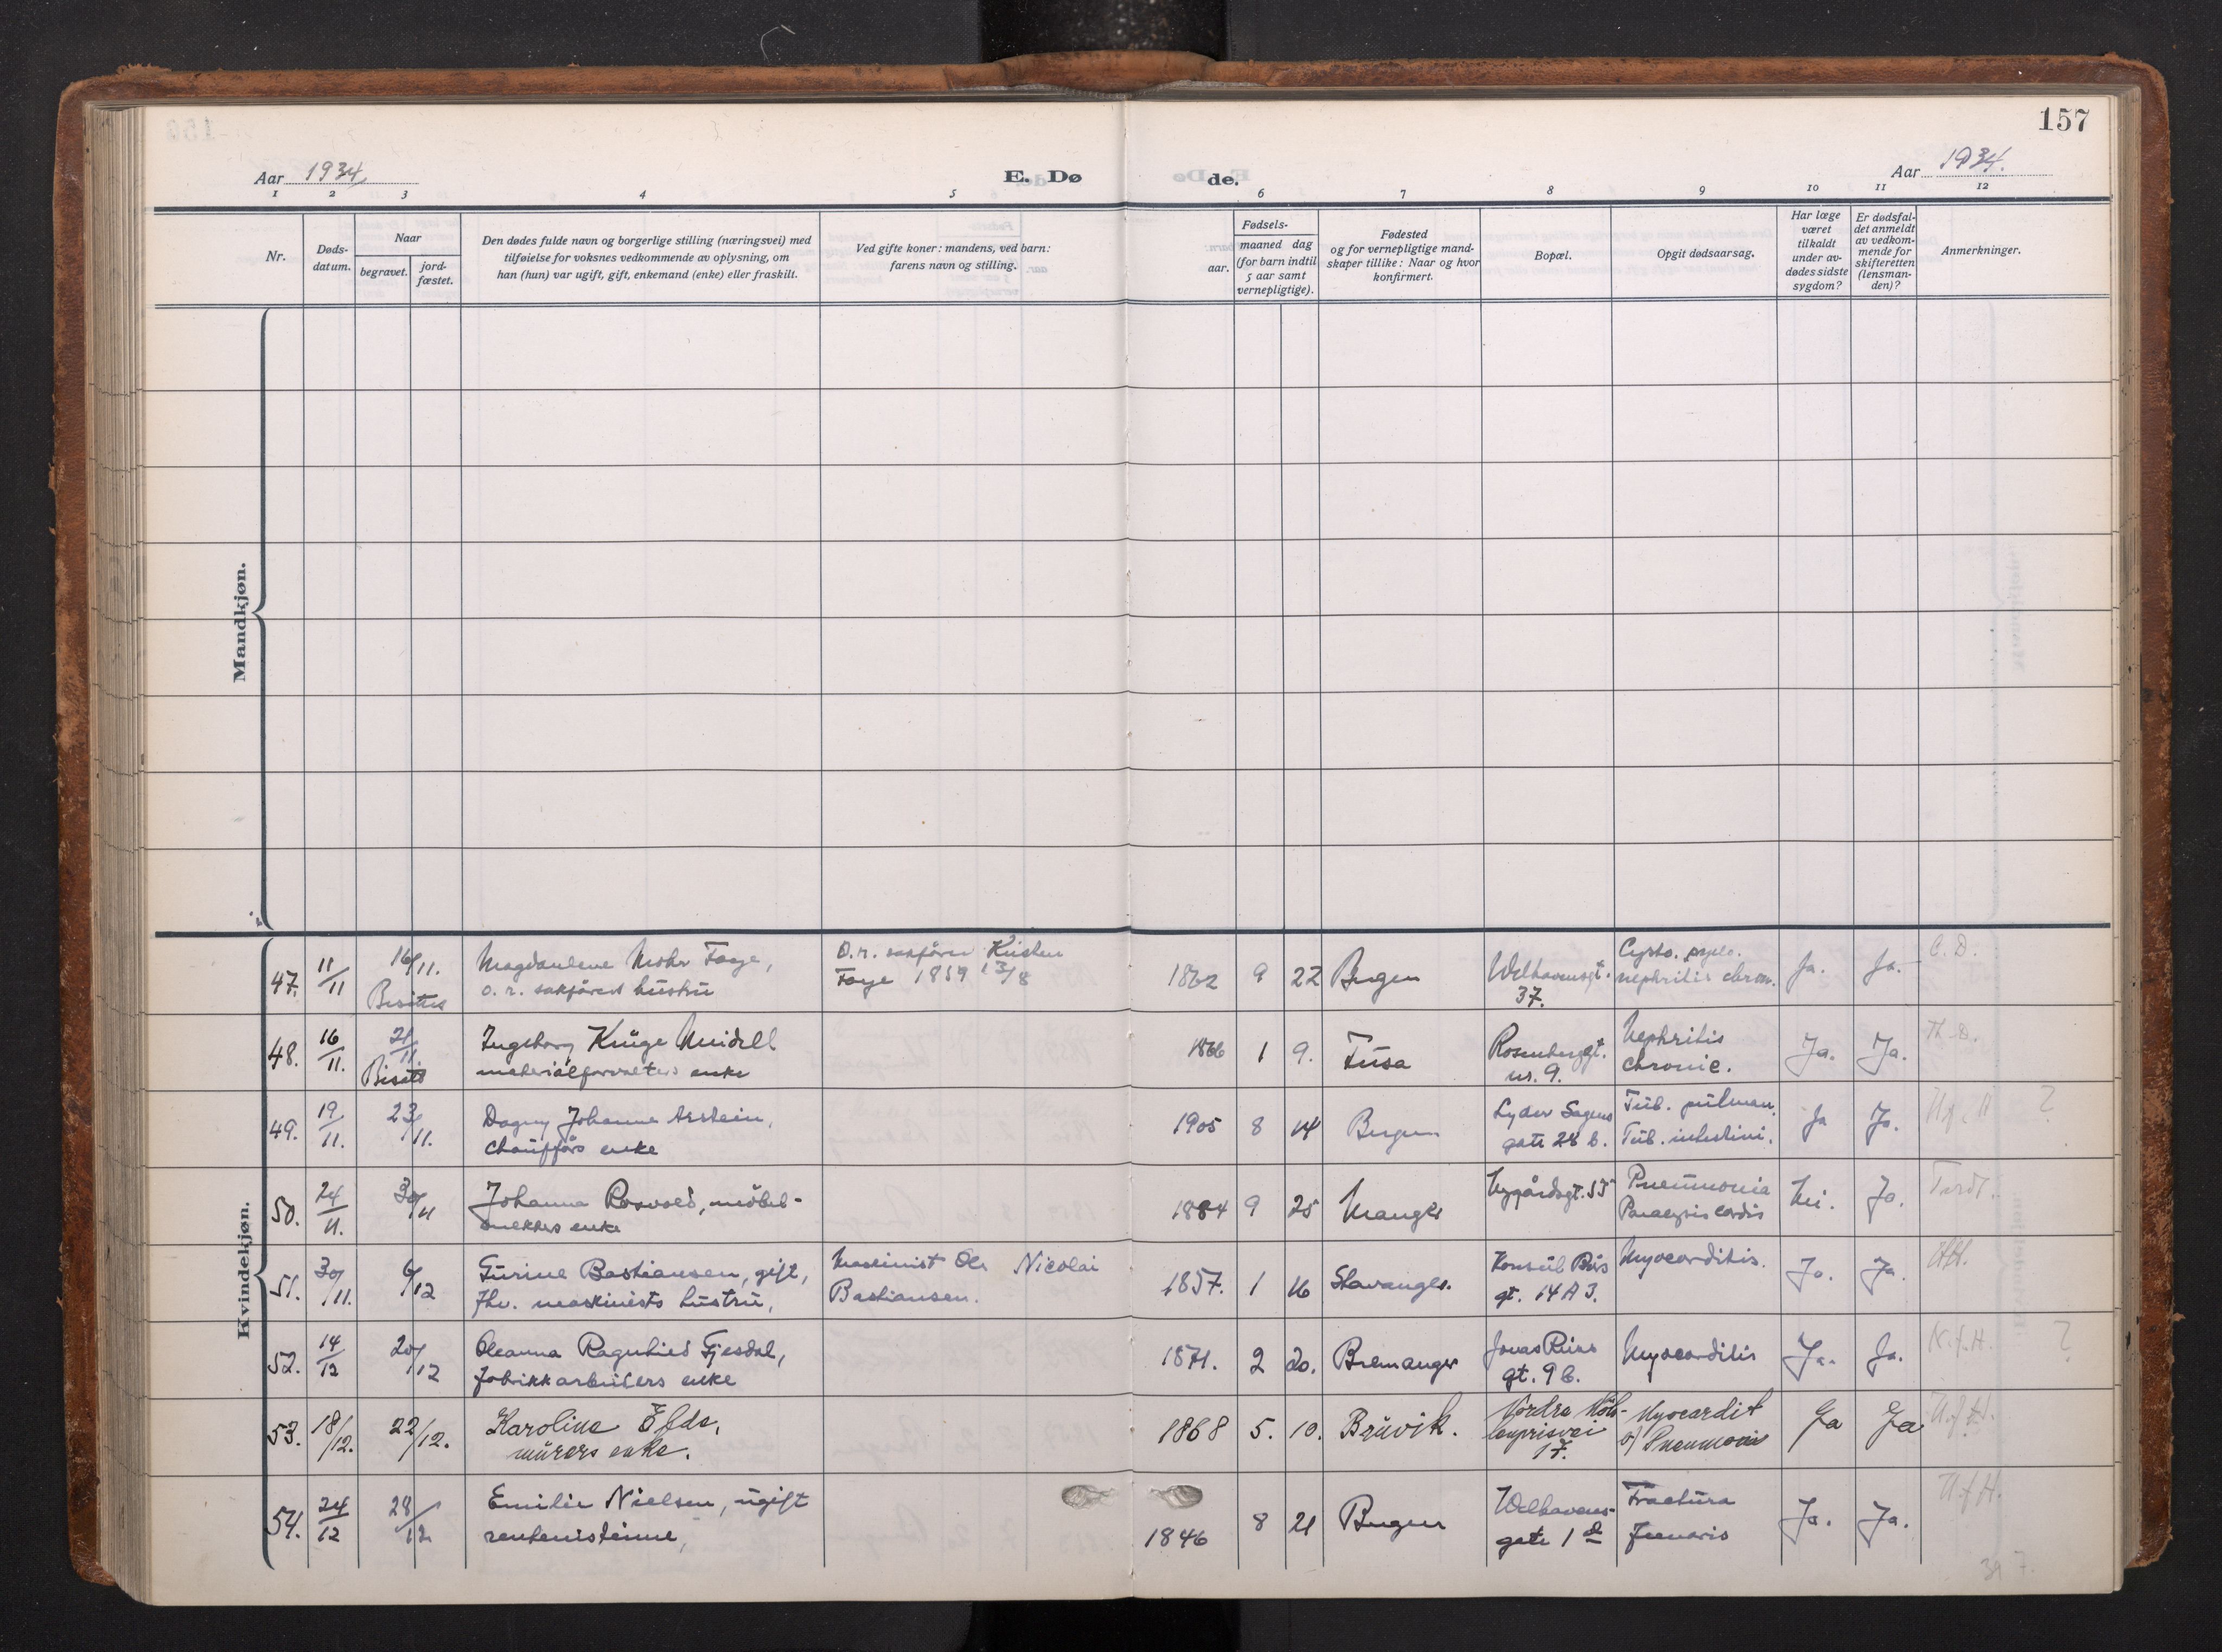 157
Aar 1934
E. Dø
de.
Aar 1934.
1 2 3 4 5 6 7 8 9 10 11 12
Nr.
Døds-
datum.
Naar
begravet.
jord-
fæstet.
Den dødes fulde navn og borgerlige stilling (næringsvei) med
tilføielse for voksnes vedkommende av oplysning, om
han (hun) var ugift, gift, enkemand (enke) eller fraskilt.
Ved gifte koner: mandens, ved barn:
farens navn og stilling.
Fødsels-
aar.
maaned dag
(for barn indtil
5 aar samt
vernepligtige).
Fødested
og for vernepligtige mand-
skaper tillike: Naar og hvor
konfirmert.
Bopæl.
Opgit dødsaarsag.
Har læge
været
tilkaldt
under av-
dødes sidste
sygdom?
Er dødsfal-
det anmeldt
av vedkom-
mende for
skifteretten
(lensman-
den)?
Anmerkninger.
Mandkjøn.
Kvindekjøn.
47. 11/11 16/11. Magdalene Mohr Faye, O.r. sakfører Kristen 1862 9 22 Bergen Welhavensgt. Cysto. pyelo. Ja. Ja. C.D.
Bisettes o. r. sakførers hustru Faye 1859 13/8 37. nephritis chron.
48. 16/11. 21/11. Ingeborg Krüge Meidell 1866 1 9. Fusa Rosenberggt. Nephritis Ja. Ja. Th.D.
Bisatt materialforvalters enke nr. 9. chronic.
49. 19/11. 23/11. Dagny Johanne Arstein, 1905 8 14 Bergen Lyder Sagens Tub. pulmon. Ja Ja. ?
Chauffførs enke gate 28 b. Tub. intestini.
50. 24/11. 30/11 Johanna Rosvold, møbel- 1884 9 25 Manger Nygårdsgt. 55 Pneumonia Nei. Ja.
snekkers enke Paralysis cordis
51. 30/11. 6/12 Turine Bastiansen, gift, Maskinist Ole Nicolai 1857. 1 16 Stavanger. Konsul Børs Myocarditis. Ja. Ja. HH.
fhv. maskinists hustru, Bastiansen. gt. 14 A 3.
52. 14/12 20/12 Oleanna Ragnhild Gjesdal, 1871. 2 20. Bremanger Jonas Reins Myocarditis Ja. Ja. K.f.H. ?
fabrikkarbeiders enke gt. 9 b.
53. 18/12. 22/12. Karoline 1868 5. 10. Bruvik. Nordre Møh- Myocardit Ja Ja U.f.H.
murers enke. lenprisvei o/ Pneumoni
17.
54. 24/12 28/12 Emilie Nielsen, ugift 1846 8 21 Bergen Welhavens- Fractura Ja. Ja. U.f.H.
rentenistinne, gate 1 d femoris